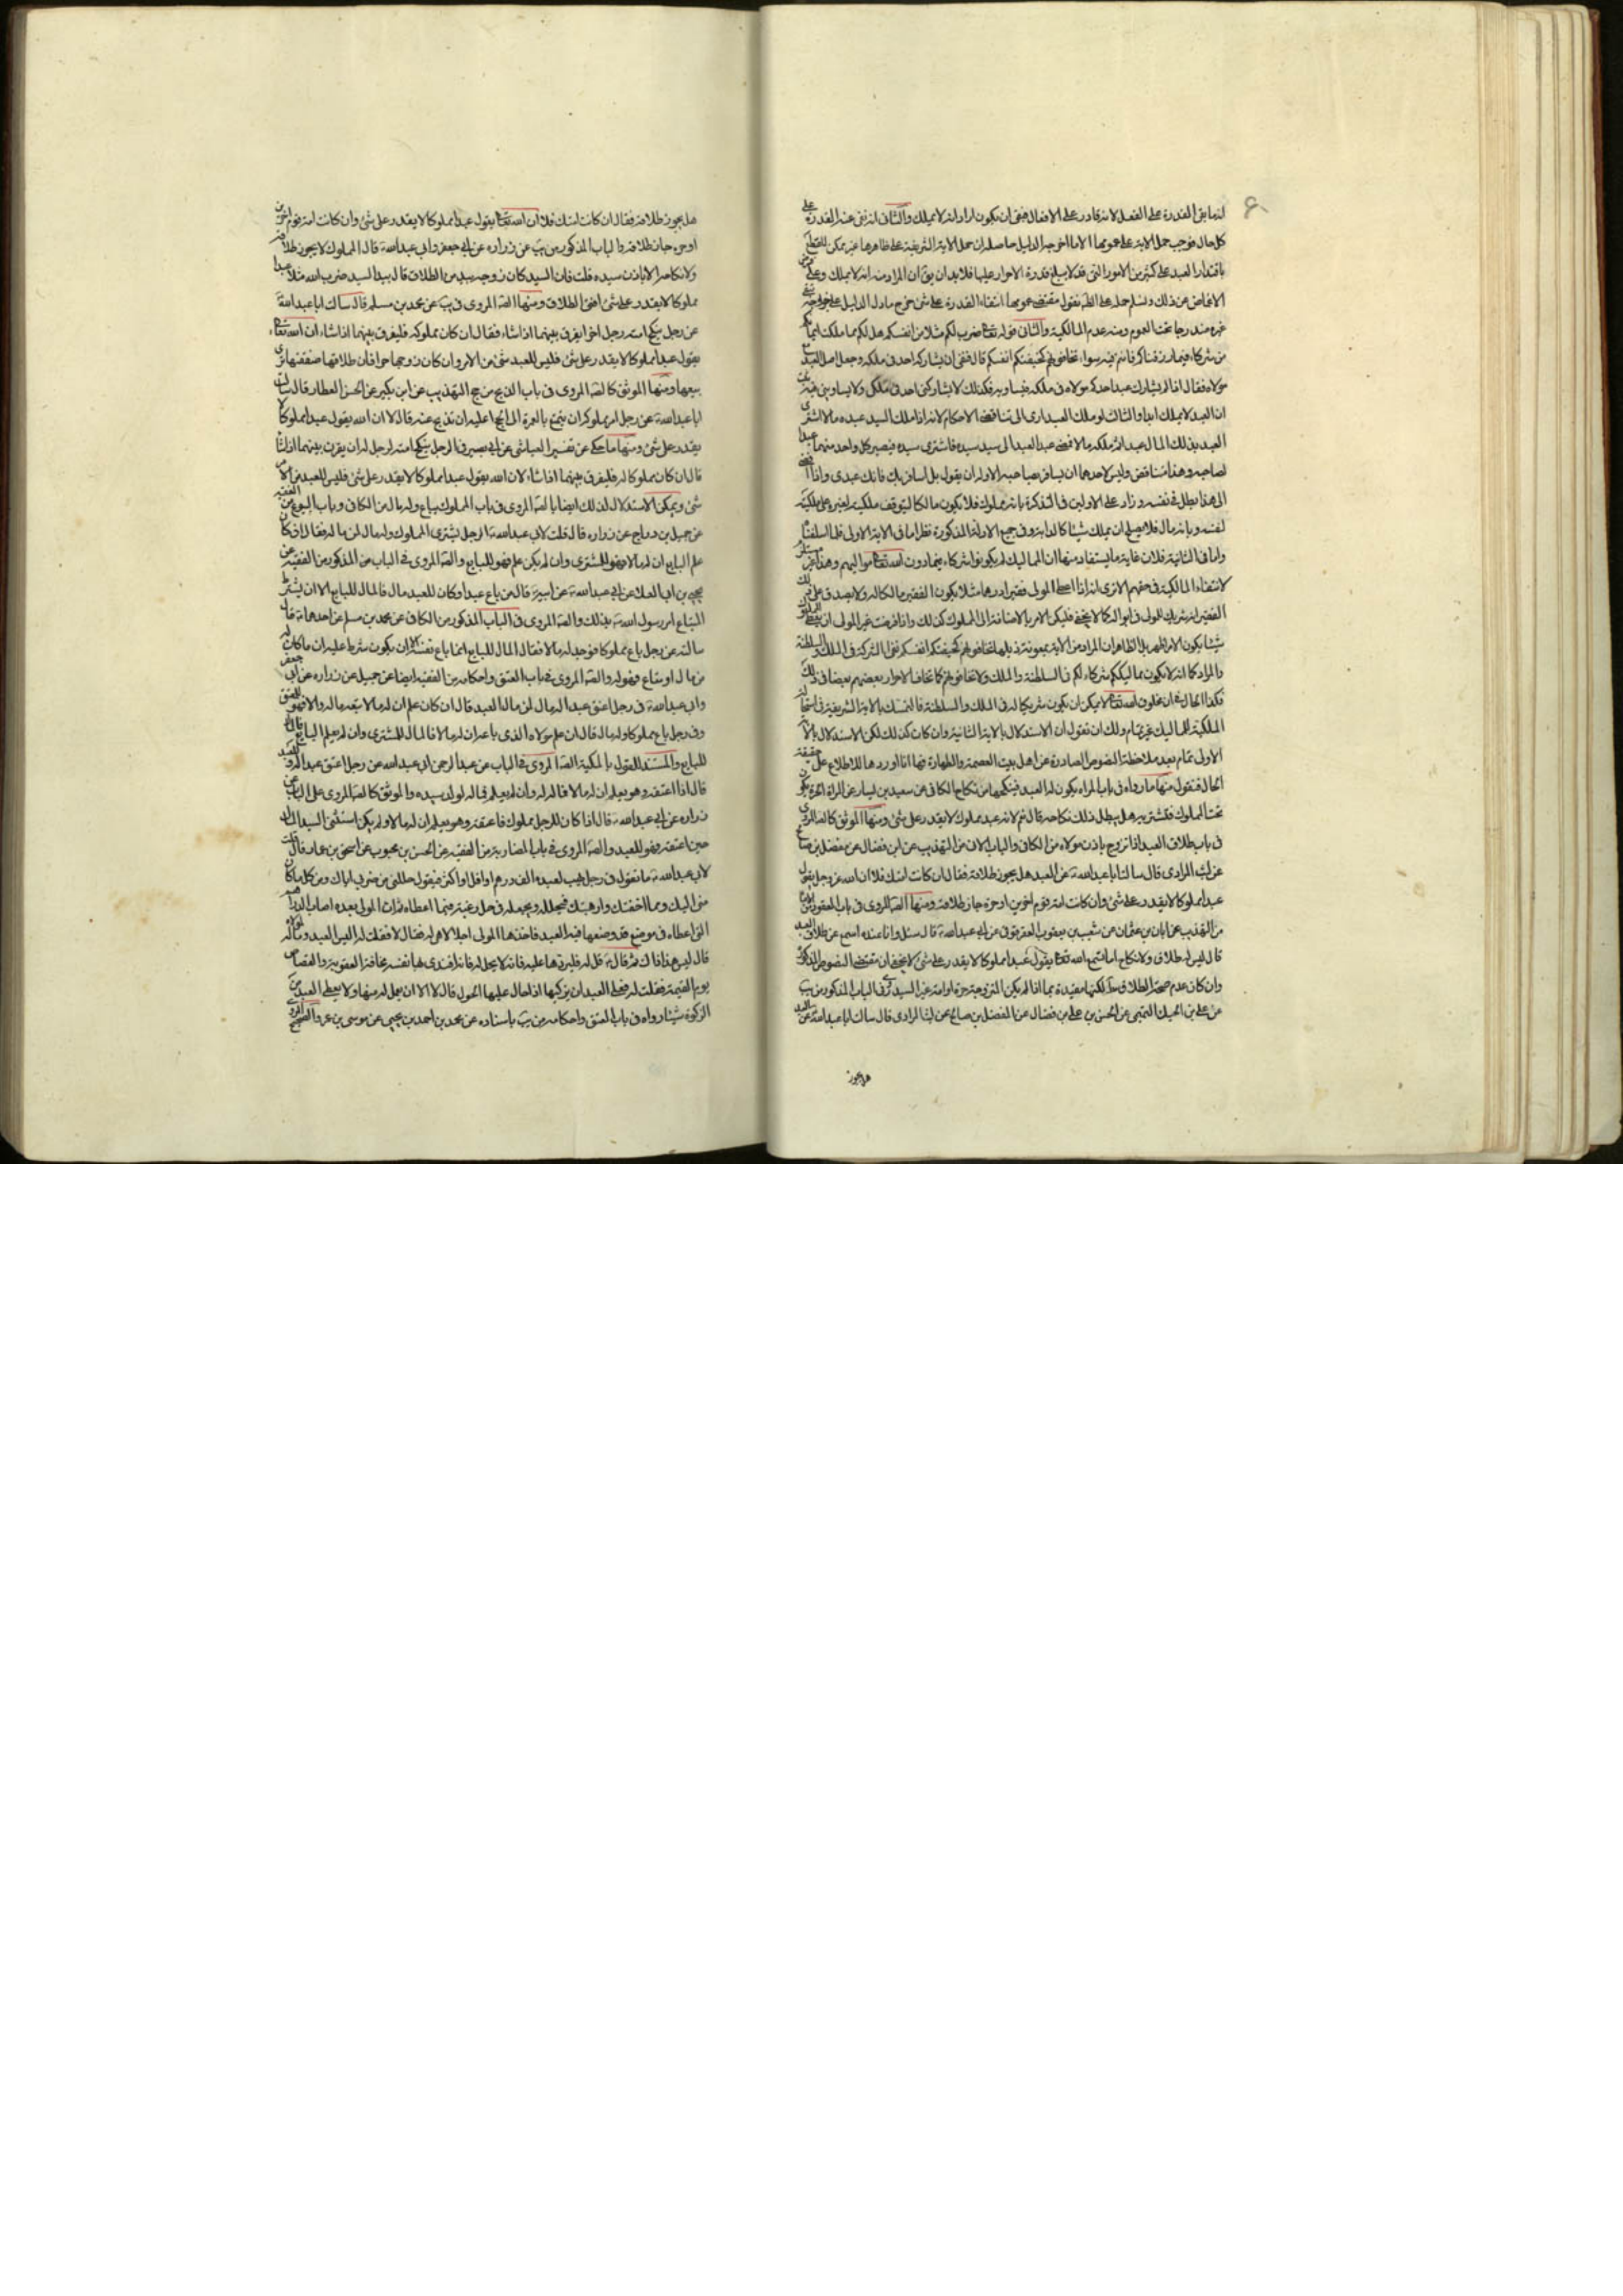 انما نفى القدرة على الفعل لانه قادر على الافعال فبقى ان يكون اراد انه لا يملك والثانى انه نفى عنه القدرة على
كل حال فوجب حمل الاية على عمومها الا ما اخرجه الدليل حاصله ان حمل الاية الشريفة على ظاهرها غير ممكن للقطع
باقتدار العبد على كثير من الامور التى قد لا يبلغ قدرة الاحرار عليها فلا بد ان يق ان المراد منه انه لا يملك وعلى فرض
الاغماض عن ذلك وتسليم حمله على الظ فنقول مقتضى عمومها انتفاء القدرة على شئ خرج ما دل الدليل على خروجه بقى
غيره مندرجا تحت العموم ومنه عدم المالكية والثانى قوله تعالى ضرب لكم مثلا من انفسكم هل لكم مما ملكت ايمانكم
من شركاء فيما رزقناكم فانتم فيه سواء تخافونهم كخيفتكم انفسكم قال فنفى ان يشاركه احد فى ملكه وجعل اصل العبد مع
مولاه فقال اذا لم يشارك عبد احدكم مولاه فى ملكه فيساويه فكذلك لا يشاركنى احد فى ملكى ولا يساوينى فيه فثبت
ان العبد لا يملك ابدا والثالث لو ملك العبد ادى الى تناقض الاحكام لانه اذا ملك السيد عبده مالا اشترى
العبد بذلك المال عبدا ثم ملكه مالا فمضى عبد العبد الى سيد سيده فاشترى سيده فيصير كل واحد منهما عبدا
لصاحبه وهذا متناقض وليس لاحدهما ان يسافر بصاحبه الا وله ان يقول بل اسافر بك فانك عبدى واذا افضى
الى هذا بطل فى نفسه وزاد على الاولين فى التذكرة بانه مملوك فلا يكون مالكا لتوقف ملكيته لغيره على ملكيته
لنفسه وبانه مال فلا يصلح ان يملك شيئا كالدابة وفى جميع الادلة المذكورة نظر اما فى الاية الاولى فلما اسلفناه
واما فى الثانية فلان غاية ما يستفاد منها ان المماليك لم يكونوا شركاء بما دون الله تعالى مواليهم وهذا غير مستلزم
لانتفاء المالكية فى حقهم الا ترى انه اذا اعطى المولى فقيرا درهما مثلا يكون الفقير مالكا له ولا يصدق على ذلك
الفقير انه شريك للمولى فى امواله كما لا يخفى فليكن الامر بالاضافة الى المملوك كذلك واذا فرضت غير المولى ان يعطى المملوك
شيئا يكون الامر اظهر بل الظاهر ان المراد من الاية بمعونة ذيلها تخافونهم كخيفتكم انفسكم نفى الشركة فى الملك والسلطنة
والمراد كما انه لا يكون مماليككم شركاء لكم فى السلطنة والملك ولا تخافونهم كما تخاف الاحرار بعضهم بعضا فى ذلك
فكذا الحال فى ان مخلوق الله تعالى لا يمكن ان يكون شريكا له فى الملك والسلطنة فالتمسك بالاية الشريفة فى انتفاء
الملكية للمماليك غير تمام ولك ان تقول ان الاستدلال بالاية الثانية وان كان كذلك لكن الاستدلال بالاية
الاولى تمام بعد ملاحظة النصوص الصادرة عن اهل بيت العصمة والطهارة فها انا اوردها للاطلاع على حقيقة
الحال فنقول منها ما رواه فى باب المراة يكون لها العبد فينكحها من نكاح الكافى عن سعيد بن يسار عن المراة الحرة تكون
تحت المملوك فتشتريه هل يبطل ذلك نكاحه قال نعم لانه عبد مملوك لا يقدر على شئ ومنها الموثق كالص المروى
فى باب طلاق العبد اذا تزوج باذن مولاه من الكافى والباب الان من التهذيب عن ابن فضال عن مفضل بن صالح
عن ليث المرادى قال سالت ابا عبد الله ع عن العبد هل يجوز طلاقه فقال ان كانت امتك فلا ان الله عز وجل يقول
عبدا مملوكا لا يقدر على شئ وان كانت امة قوم اخرين او حرة جاز طلاقه ومنها الص المروى فى باب العقود
من التهذيب عن ابان بن عثمان عن شعيب بن يعقوب العقرقوفى عن ابى عبد الله ع قال سئل وانا عنده اسمع عن طلاق العبد
قال ليس له طلاق ولا نكاح اما تسمع الله تعالى يقول عبدا مملوكا لا يقدر على شئ لا يخفى ان مقتضى النصوص المذكورة
وان كان عدم صحة الطلاق مط لكنها مقيدة بما اذا لم يكن الزوجة حرة او امة غير السيد فى الباب المذكور من يب
عن على بن اسمعيل الميثمى عن الحسن بن على بن فضال عن المفضل بن صالح عن ليث المرادى قال سالت ابا عبد الله ع عن العبد
هل يجوز
هل يجوز طلاقه فقال ان كانت امتك فلا ان الله تعالى يقول عبدا مملوكا لا يقدر على شئ وان كانت امة قوم اخرين
او حرة جاز طلاقه والباب المذكور من يب عن زرارة عن ابى جعفر وابى عبد الله ع قال المملوك لا يجوز طلاقه
ولا نكاحه الا باذن سيده قلت فان السيد كان زوجه بيد من الطلاق قال بيد السيد ضرب الله مثلا عبدا
مملوكا لا يقدر على شئ افشئ الطلاق ومنها الص المروى فى يب عن محمد بن مسلم قال سالت ابا عبد الله ع
عن رجل ينكح امته رجل اخر ايفرق بينهما اذا شاء فقال ان كان مملوكه فليفرق بينهما اذا شاء ان الله تعالى
يقول عبدا مملوكا لا يقدر على شئ فليس للعبد شئ من الامر وان كان زوجها حرا فان طلاقها صفقتها اى
بيعها ومنها الموثق كالص المروى فى باب الذبح من حج التهذيب عن ابن بكير عن الحسن العطار قال سالت
ابا عبد الله ع عن رجل امر مملوكه ان يتمتع بالعمرة الى الحج اعليه ان يذبح عنه قال لا ان الله يقول عبدا مملوكا لا
يقدر على شئ ومنها ما حكى عن تفسير العياشى عن ابى بصير فى الرجل ينكح امته لرجل له ان يفرق بينهما اذا شاء
قال ان كان مملوكا له فليفرق بينهما اذا شاء لان الله يقول عبدا مملوكا لا يقدر على شئ فليس للعبد من الامر
شئ ويمكن الاستدلال لذلك ايضا بالص المروى فى باب المملوك يباع وله مال من الكافى وباب البيوع من الفقيه
عن جميل بن دراج عن زرارة قال قلت لابى عبد الله ع الرجل يشترى المملوك وله مال لمن ماله فقال ان كان
علم البايع ان له مالا فهو للمشترى وان لم يكن علم فهو للبايع والص المروى فى الباب المذكور من الفقيه عن
يحيى بن ابى العلا عن ابى عبد الله ع عن ابيه ع قال من باع عبدا وكان للعبد مال فالمال للبايع الا ان يشترط
المبتاع امر رسول الله ص بذلك والص المروى فى الباب المذكور من الكافى عن محمد بن مسلم عن احدهما ع قال
سالته عن رجل باع مملوكا فوجد له مالا فقال المال للبايع انما باع نفسه الا ان يكون شرط عليه ان ما كان له
من مال او متاع فهو له والص المروى فى باب العتق واحكامه من الفقيه ايضا عن جميل عن زرارة عن ابى جعفر
وابى عبد الله ع فى رجل اعتق عبدا له مال لمن مال العبد قال ان كان علم ان له مالا تبعه ماله والا فهو للمعتق
وفى رجل باع مملوكا وله مال قال ان علم مولاه الذى باعه ان له مالا فالمال للمشترى وان لم يعلم البايع فالمال
للبايع والمستند للقول بالملكية الص المروى فى الباب عن عبد الرحمن ابى عبد الله عن رجل اعتق عبدا
قال اذا اعتقه وهو يعلم ان له مالا فماله له وان لم يعلم فماله لولد سيده والموثق كالص المروى فى الباب عن
زرارة عن ابى عبد الله ع قال اذا كان للرجل مملوك فاعتقه وهو يعلم ان له مالا ولم يكن استثنى السيد المال
حين اعتقه فهو للعبد والص المروى فى باب المضاربة من الفقيه عن الحسن بن محبوب عن اسحق بن عمار قال قلت
لابى عبد الله ع ما تقول فى رجل يهب لعبده الف درهم او اقل او اكثر فيقول حللنى من ضربى اياك ومن كل ما كان
منى اليك ومما اخفتك وارهبتك فيحلله ويجعله فى حل رغبة فيما اعطاه ثم ان المولى بعده اصاب الدراهم
التى اعطاه فى موضع قد وضعها فيه العبد فاخذها المولى احلال هى له فقال لا فقلت له اليس العبد وماله لمولاه
قال ليس هذا ذاك ثم قال ع قل له فليردها عليه فانه لا يحل له فانه افتدى بها نفسه مخافة العقوبة والقصاص
يوم القيمة فقلت له فعلى العبد ان يزكيها اذا حال عليها الحول قال لا الا ان يعمل له منها ولا يعطى العبد من
الزكوة شيئا رواه فى باب العتق واحكامه من يب باسناده عن محمد بن احمد بن يحيى عن موسى بن عمر والصحيح المروى